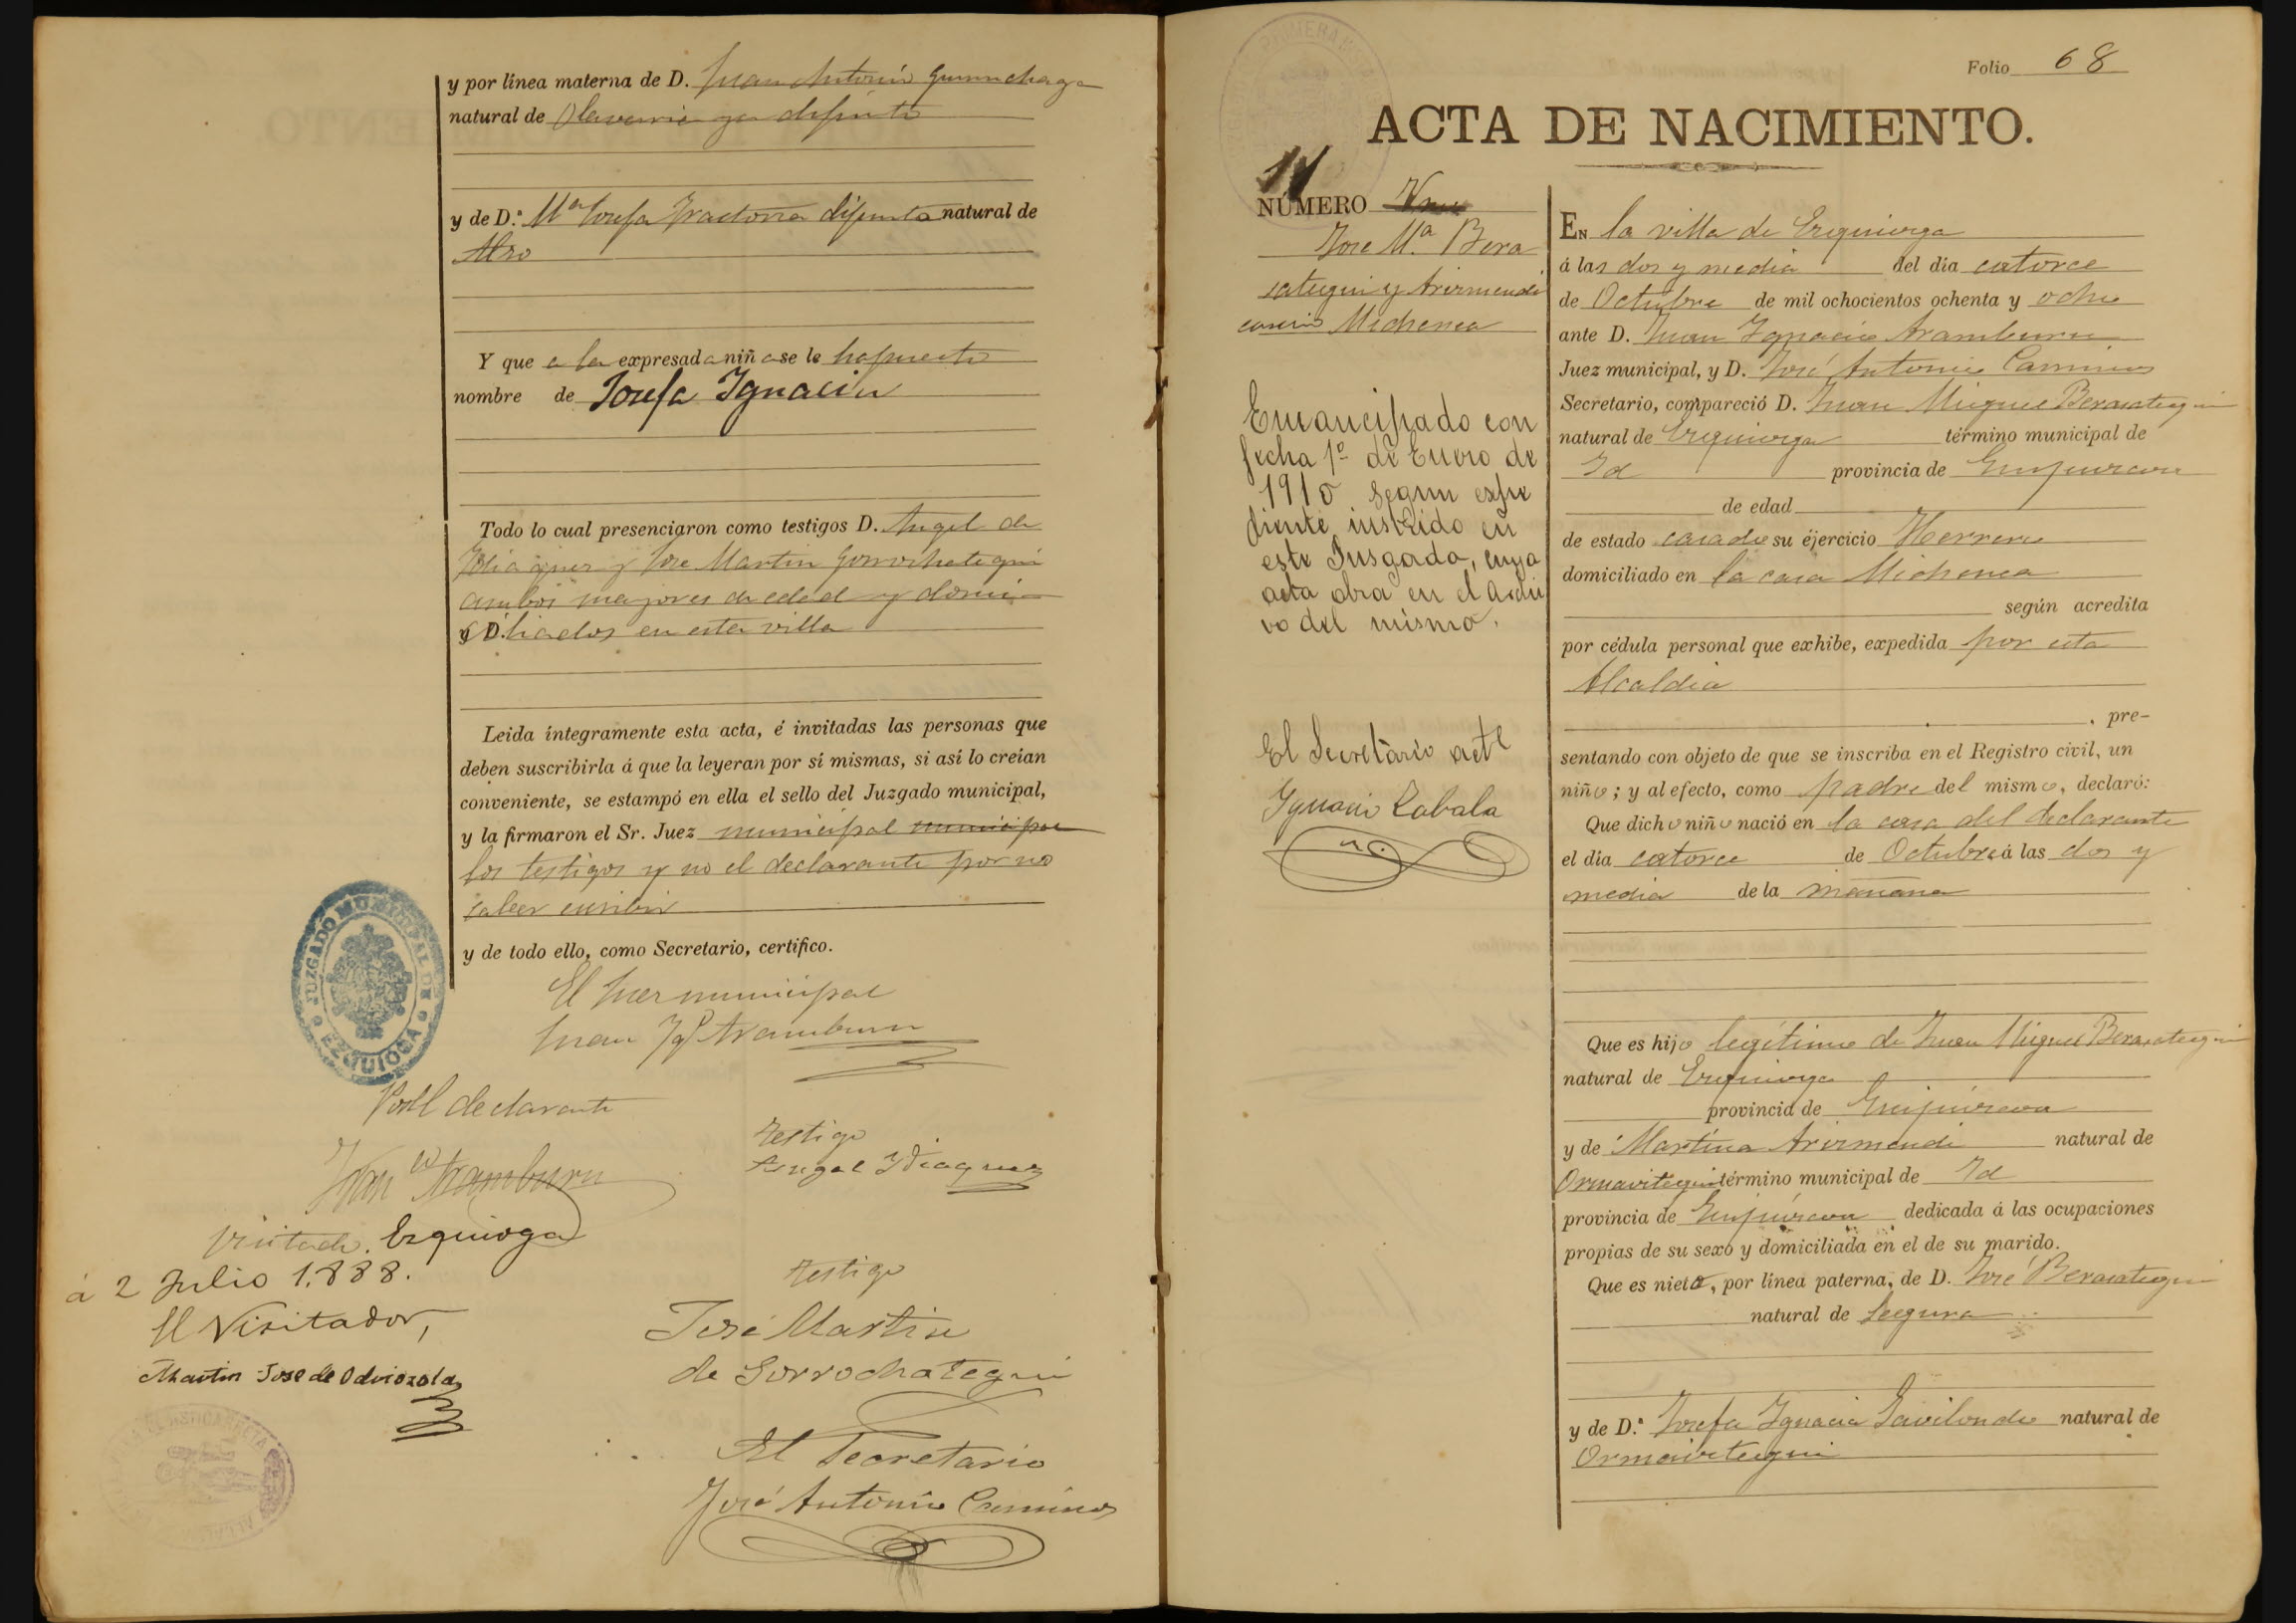 y por línea materna de D. Juan Antonio
natural de Olaverria ya difunto
y de D.ª Mª Josefa difunta natural de
Alzo
Y que a la expresada niña se le ha puesto
nombre de Josefa Ignacia
Todo lo cual presenciaron como testigos D. Angel de
Ydiaquez y Jose Martin Gorrochategui
ambos mayores de edad y domi-
y D. ciliados en esta villa
Leida íntegramente esta acta, é invitadas las personas que
deben suscribirla á que la leyeran por sí mismas, si así lo creían
conveniente, se estampó en ella el sello del Juzgado municipal,
y la firmaron el Sr. Juez municipal municipal
los testigos y no el declarante por no
saber escribir
y de todo ello, como Secretario, certifico.
JUZGADO MUNICIPAL DE
EZQUIOGA
El Juez municipal
Juan Ygº Aramburu
Por el declarante
Aramburu
Testigo
Angel Ydiaquez
Visitado. Ezquioga
á 2 Julio 1.888.
El Visitador,
Martin Jose de Odriozola
Testigo
José Martin
de Gorrochategui
El Secretario
José Antonio Caminos
Folio 68
ACTA DE NACIMIENTO.
11
NÚMERO
Jose Mª Bera
sategui y Arizmendi
caserio Michenea
Emancipado con
fecha 1º de Enero de
1910 segun expe
diente instruido en
este Jusgado, cuya
acta obra en el archi
vo del mismo.
El Secretario actl
Ygnacio Zabala
EN la villa de Ezquioga
á las dos y media del día catorce
de Octubre de mil ochocientos ochenta y ocho
ante D. Juan Ygnacio Aramburu
Juez municipal, y D. José Antonio Caminos
Secretario, compareció D. Juan Miguel Berasategui
natural de Ezquioga término municipal de
Id provincia de Guipúzcoa
de edad
de estado casado su ejercicio Herrero
domiciliado en la casa Michenea
según acredita
por cédula personal que exhibe, expedida por esta
Alcaldia
, pre-
sentando con objeto de que se inscriba en el Registro civil, un
niño; y al efecto, como padre del mismo, declaró:
Que dicho niño nació en la casa del declarante
el día catorce de Octubre á las dos y
media de la mañana
Que es hijo legítimo de Juan Miguel Berasategui
natural de Ezquioga
provincia de Guipúzcoa
y de Martina Arizmendi natural de
Ormaiztegui término municipal de Id
provincia de Guipúzcoa dedicada á las ocupaciones
propias de su sexo y domiciliada en el de su marido.
Que es nieto, por línea paterna, de D. José Berasategui
natural de Segura
y de D.ª Josefa Ygnacia Gavilondo natural de
Ormaiztegui